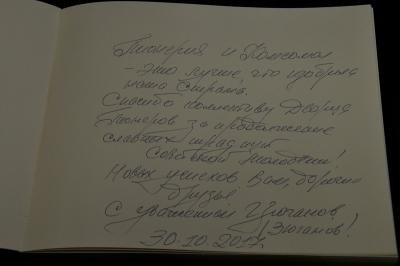 Пионерия и Комсомол
- это лучшее, что изобрела
наша Страна.
Спасибо коллективу Дворца
Пионеров за продолжение
славных традиций
Советской молодёжи!
Новых успехов Вам, дорогие
друзья.
С уважением Г. Зюганов
(Зюганов)!
30.10.2017г.